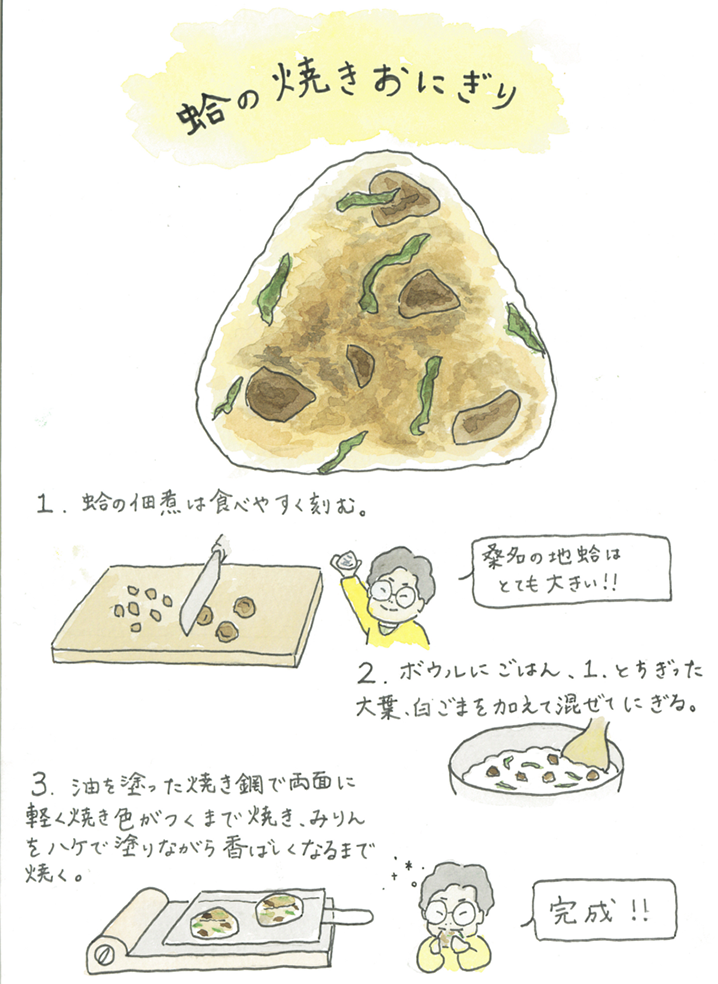 蛤の焼きおにぎり
1. 蛤の佃煮は食べやすく刻む。
桑名の地蛤は
とても大きい!!
2. ボウルにごはん、1、とちぎった
大葉、白ごまを加えて混ぜてにぎる。
3. 油を塗った焼き網で両面に
軽く焼き色がつくまで焼き、みりん
をハケで塗りながら香ばしくなるまで
焼く。
完成!!